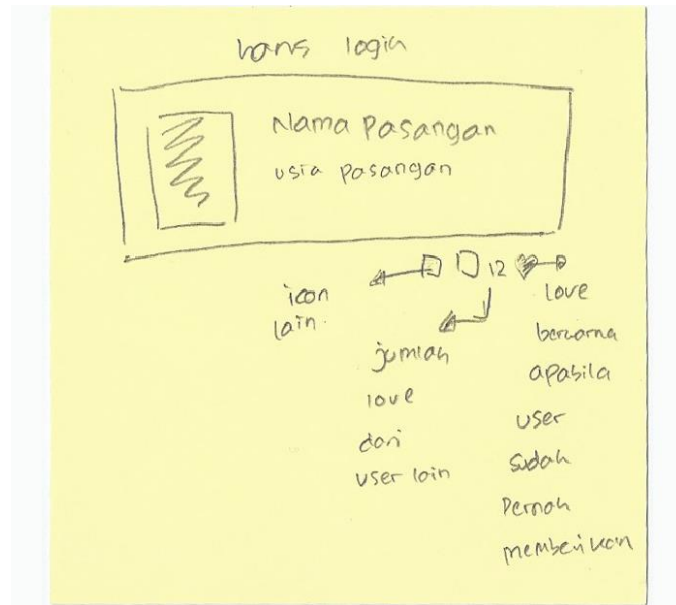 harus login
Nama Pasangan
usia pasangan
12
icon
lain.
jumlah
love
dari
user lain
love
berwarna
apabila
user
sudah
Pernah
memberikan